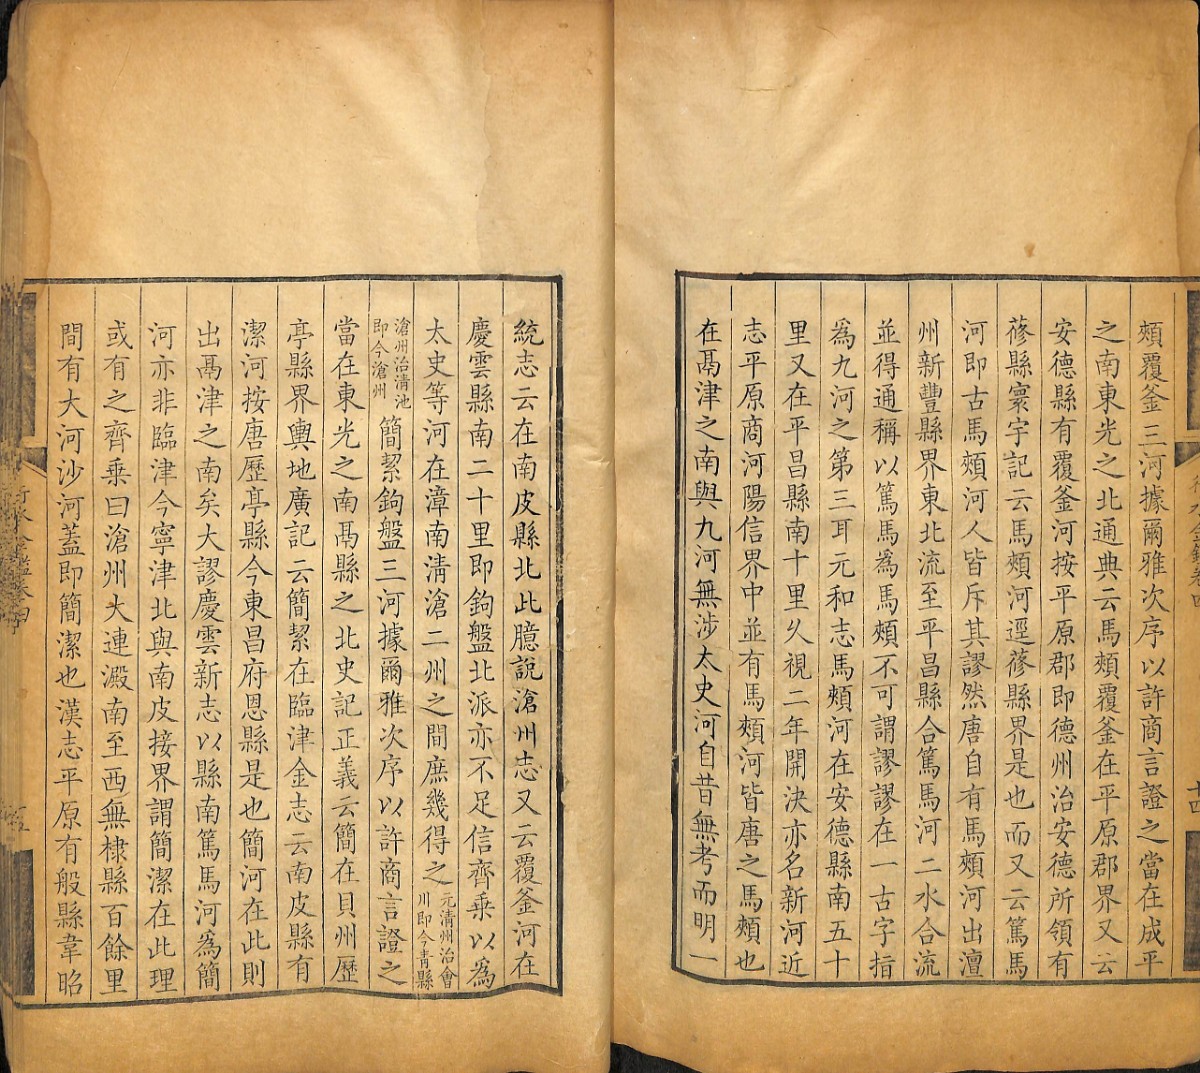 頰覆釜三河據爾雅次序以許商言證之當在成平
之南東光之北通典云馬頰覆釜在平原郡界又云
安德縣有覆釜河按平原郡即德州治安德所領有
蓨縣寰宇記云馬頰河逕蓨縣界是也而又云篤馬
河即古馬頰河人皆斥其謬然唐自有馬頰河出澶
州新豐縣界東北流至平昌縣合篤馬河二水合流
並得通稱以篤馬為馬頰不可謂謬謬在一古字指
為九河之第三耳元和志馬頰河在安德縣南五十
里又在平昌縣南十里久視二年開決亦名新河近
志平原商河陽信界中並有馬頰河皆唐之馬頰也
在鬲津之南與九河無涉太史河自昔無考而明一
統志云在南皮縣北此臆說滄州志又云覆釜河在
慶雲縣南二十里即鉤盤北派亦不足信齊乘以為
太史等河在漳南清滄二州之間庶幾得之元清州治會川即今青縣
滄州治清池即今滄州簡絜鉤盤三河據爾雅次序以許商言證之
當在東光之南鬲縣之北史記正義云簡在貝州歷
亭縣界輿地廣記云簡絜在臨津金志云南皮縣有
潔河按唐歷亭縣今東昌府恩縣是也簡河在此則
出鬲津之南矣大謬慶雲新志以縣南篤馬河為簡
河亦非臨津今寧津北與南皮接界謂簡潔在此理
或有之齊乘曰滄州大連澱南至西無棣縣百餘里
間有大河沙河蓋即簡潔也漢志平原有般縣韋昭